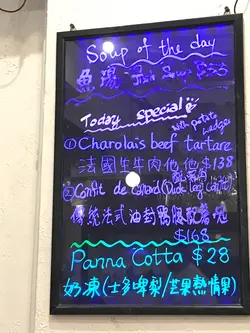 Soup of the day
魚湯 Fish Soup $38
Today special
① Charolais beef tartare
with potato wedges
法國生牛肉他他 $138
② Confit de Canard (Duck leg Confit)
傳統法式油封鴨腿配薯塊
$168
Panna Cotta $28
奶凍(士多啤梨/芒果熱情果)